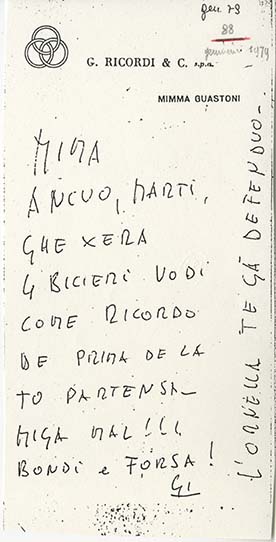 gen 79
88
gennaio 1979
G. RICORDI & C. s.p.a.
MIMMA GUASTONI
MIMA
ANCUO, MARTI,
GHE XERA
4 BICIERI VODI
COME RICORDO
DE PRIMA DE LA
TO PARTENSA_
MIGA MAL!!!
BONDÌ e FORSA!
GI
L'ORNELLA TE GÀ DEFENDUO_